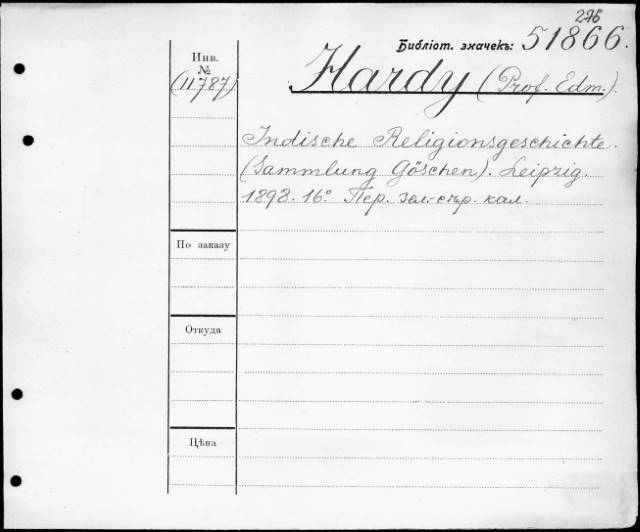 276
Библіот. значекъ: 51866.
Инв.
№
(11787)
Hardy (Prof. Edm.).
Indische Religionsgeschichte.
(Sammlung Göschen). Leipzig.
1898. 16° Пер. зел.-сѣр. кал.
По заказу
Откуда
Цѣна